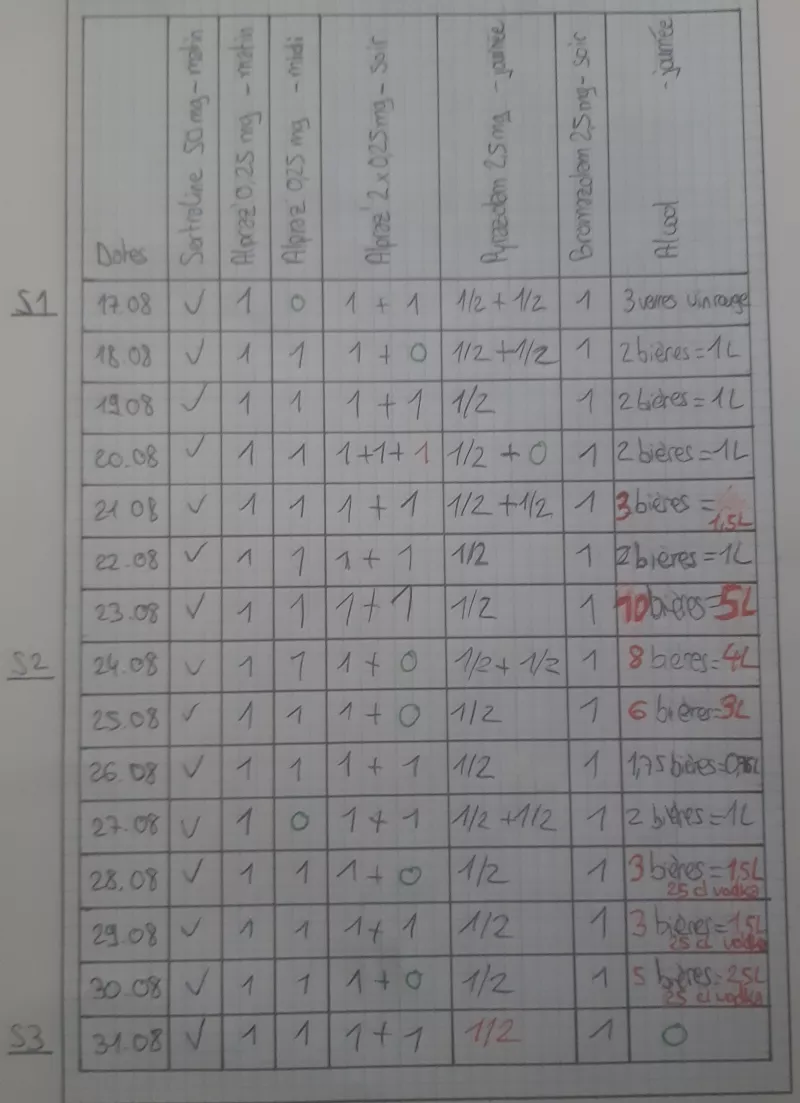 Dates Sertraline 50 mg - matin Alpraz 0,25 mg - matin Alpraz 0,25 mg - midi Alpraz 2 x 0,25 mg - soir Pyrazolam 2,5 mg - journée Bromazolam 2,5 mg - soir Alcool - journée
S1 17.08 ✓ 1 0 1 + 1 1/2 + 1/2 1 3 verres vin rouge
18.08 ✓ 1 1 1 + 0 1/2 + 1/2 1 2 bières = 1L
19.08 ✓ 1 1 1 + 1 1/2 1 2 bières = 1L
20.08 ✓ 1 1 1+1+1 1/2 + 0 1 2 bières = 1L
21.08 ✓ 1 1 1 + 1 1/2 + 1/2 1 3 bières =
1,5L
22.08 ✓ 1 1 1 + 1 1/2 1 2 bières = 1L
23.08 ✓ 1 1 1 + 1 1/2 1 10 bières = 5L
S2 24.08 ✓ 1 1 1 + 0 1/2 + 1/2 1 8 bières = 4L
25.08 ✓ 1 1 1 + 0 1/2 1 6 bières = 3L
26.08 ✓ 1 1 1 + 1 1/2 1 1,75 bières =
27.08 ✓ 1 0 1 + 1 1/2 + 1/2 1 2 bières = 1L
28.08 ✓ 1 1 1 + 0 1/2 1 3 bières = 1,5L
25 cl vodka
29.08 ✓ 1 1 1 + 1 1/2 1 3 bières = 1,5L
25 cl vodka
30.08 ✓ 1 1 1 + 0 1/2 1 5 bières = 2,5L
25 cl vodka
S3 31.08 ✓ 1 1 1 + 1 1/2 1 0